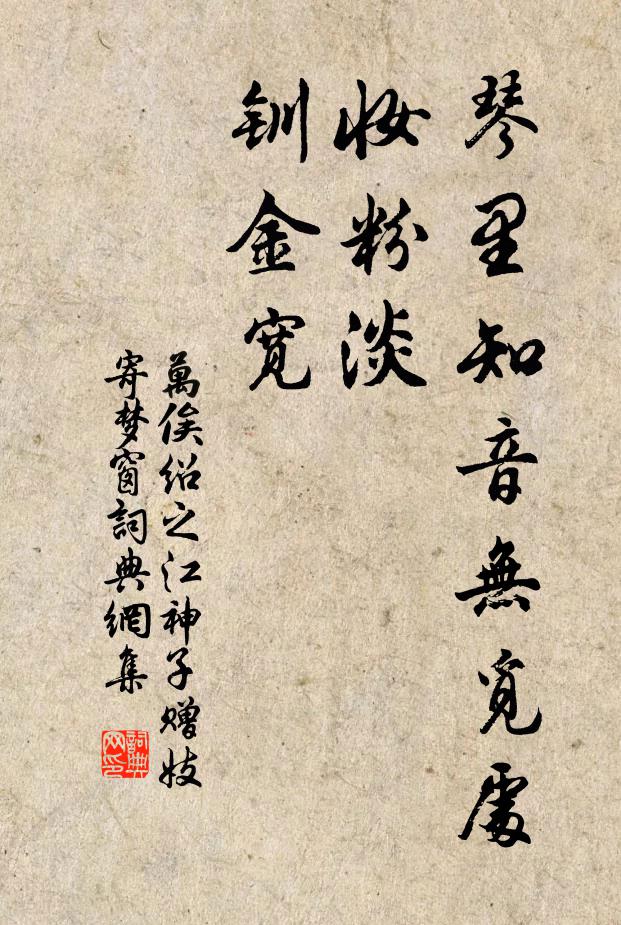 琴里知音無覓處
妝粉淡
釧金寬
萬俟紹之江神子贈妓
寄夢窗詞典網集
詞典网印